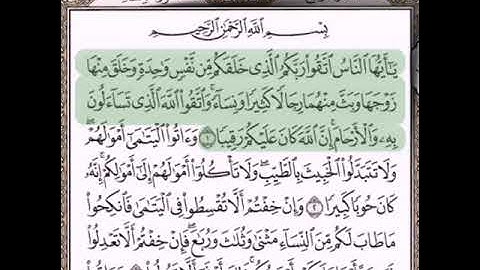 بِسْمِ ٱللَّهِ ٱلرَّحْمَٰنِ ٱلرَّحِيمِ
يَٰٓأَيُّهَا ٱلنَّاسُ ٱتَّقُوا۟ رَبَّكُمُ ٱلَّذِى خَلَقَكُم مِّن نَّفْسٍ وَٰحِدَةٍ وَخَلَقَ مِنْهَا
زَوْجَهَا وَبَثَّ مِنْهُمَا رِجَالًا كَثِيرًا وَنِسَآءً ۚ وَٱتَّقُوا۟ ٱللَّهَ ٱلَّذِى تَسَآءَلُونَ
بِهِۦ وَٱلْأَرْحَامَ ۚ إِنَّ ٱللَّهَ كَانَ عَلَيْكُمْ رَقِيبًا ١ وَءَاتُوا۟ ٱلْيَتَٰمَىٰٓ أَمْوَٰلَهُمْ ۖ
وَلَا تَتَبَدَّلُوا۟ ٱلْخَبِيثَ بِٱلطَّيِّبِ ۖ وَلَا تَأْكُلُوٓا۟ أَمْوَٰلَهُمْ إِلَىٰٓ أَمْوَٰلِكُمْ ۚ إِنَّهُۥ
كَانَ حُوبًا كَبِيرًا ٢ وَإِنْ خِفْتُمْ أَلَّا تُقْسِطُوا۟ فِى ٱلْيَتَٰمَىٰ فَٱنكِحُوا۟
مَا طَابَ لَكُم مِّنَ ٱلنِّسَآءِ مَثْنَىٰ وَثُلَٰثَ وَرُبَٰعَ ۖ فَإِنْ خِفْتُمْ أَلَّا تَعْدِلُوا۟